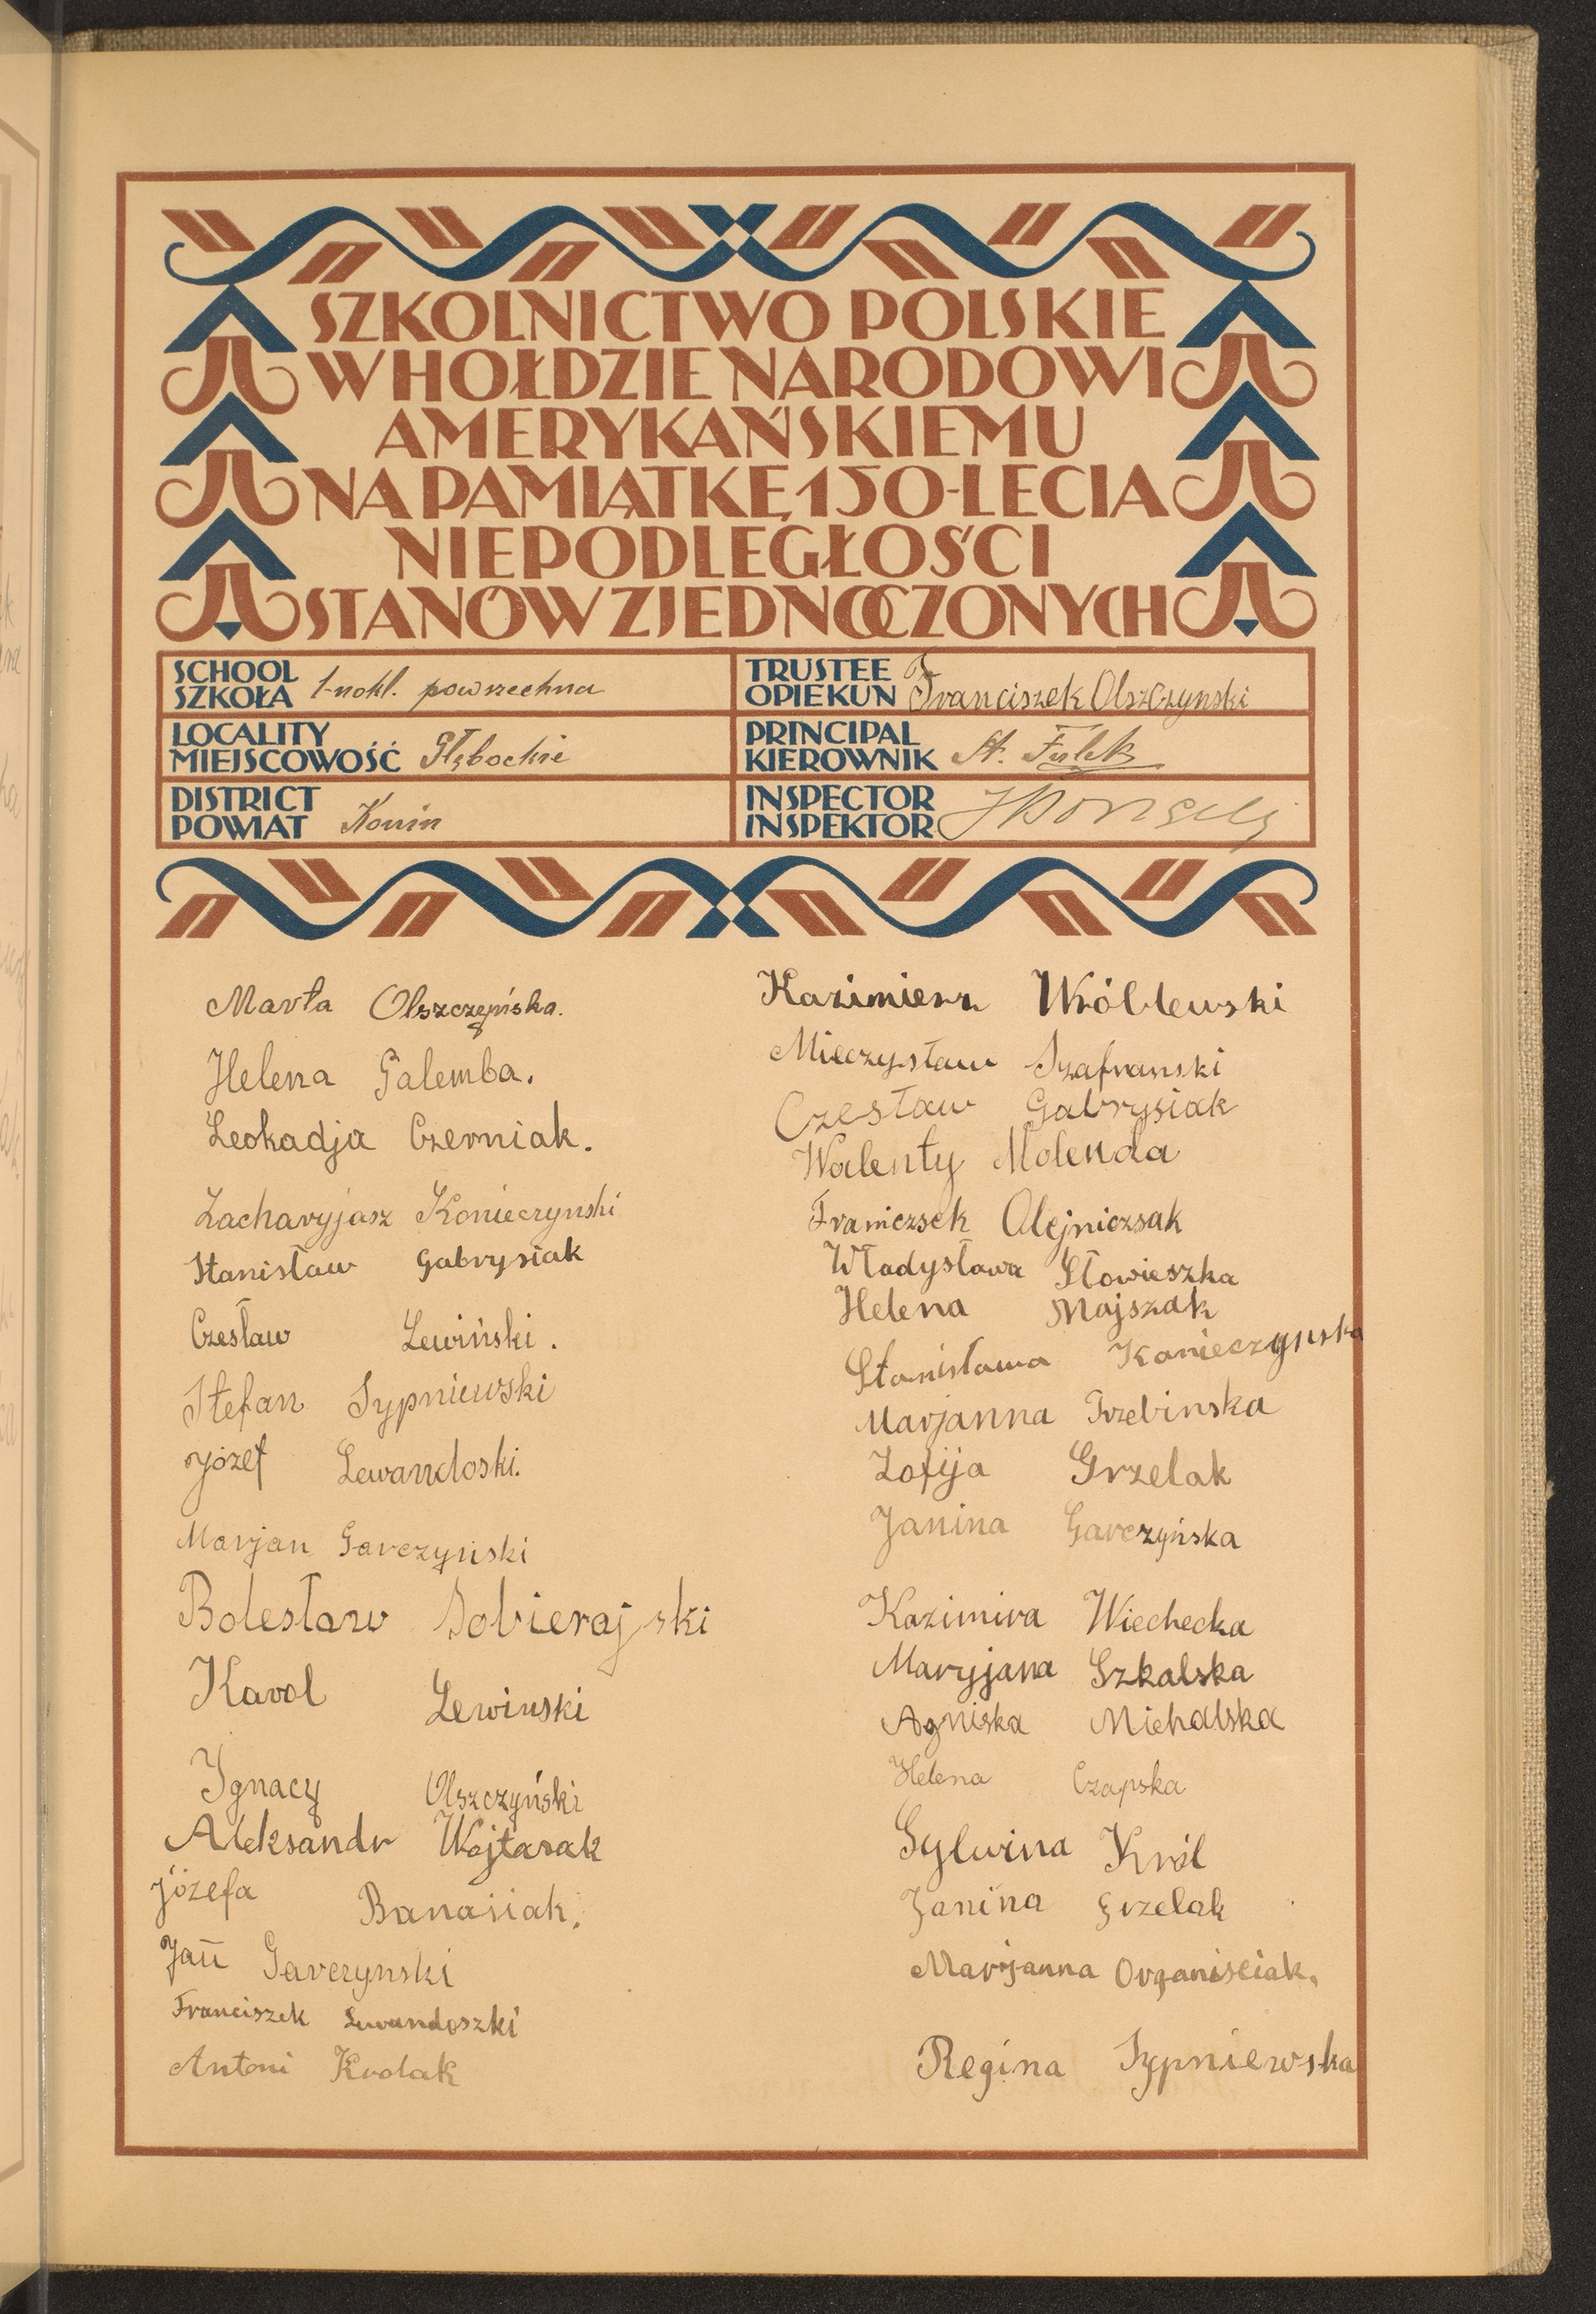 SZKOLNICTWO POLSKIE
W HOŁDZIE NARODOWI
AMERYKAŃSKIEMU
NA PAMIĄTKĘ 150-LECIA
NIEPODLEGŁOŚCI
STANÓW ZJEDNOCZONYCH
SCHOOL
SZKOŁA 1-nokl. powrzechna
LOCALITY
MIEJSCOWOŚĆ Głębockie
DISTRICT
POWIAT Konin
TRUSTEE
OPIEKUN Franciszek Olszczynski
PRINCIPAL
KIEROWNIK St. Fulek
INSPECTOR
INSPEKTOR
Marta Olszczyńska.
Helena Galemba.
Leokadja Czerniak.
Zacharyjasz Konieczynski
Stanisław Gabrysiak
Czesław Lewiński.
Stefan Sypniewski
Józef Lewandoski.
Marjan Garczyński
Bolesław Sobierajski
Karol Lewinski
Ignacy Olszczyński
Aleksandr Wojtasak
Józefa Banasiak.
Jan Garczynski
Franciszek Lewandoszki
Antoni Krolak
Kazimierz Wróblewski
Mieczysław Szafranski
Czesław Gabrysiak
Walenty Molenda
Franiczsek Olejniczsak
Władysława Słowieszka
Helena Majszak
Stanisława Konieczynska
Marjanna Trzebinska
Zofija Grzelak
Janina Garczyńska
Kazimira Wiechecka
Maryjana Szkalska
Agniska Michalska
Helena Czapska
Sylwina Król
Janina Grzelak
Marijanna Organisciak.
Regina Sypniewska